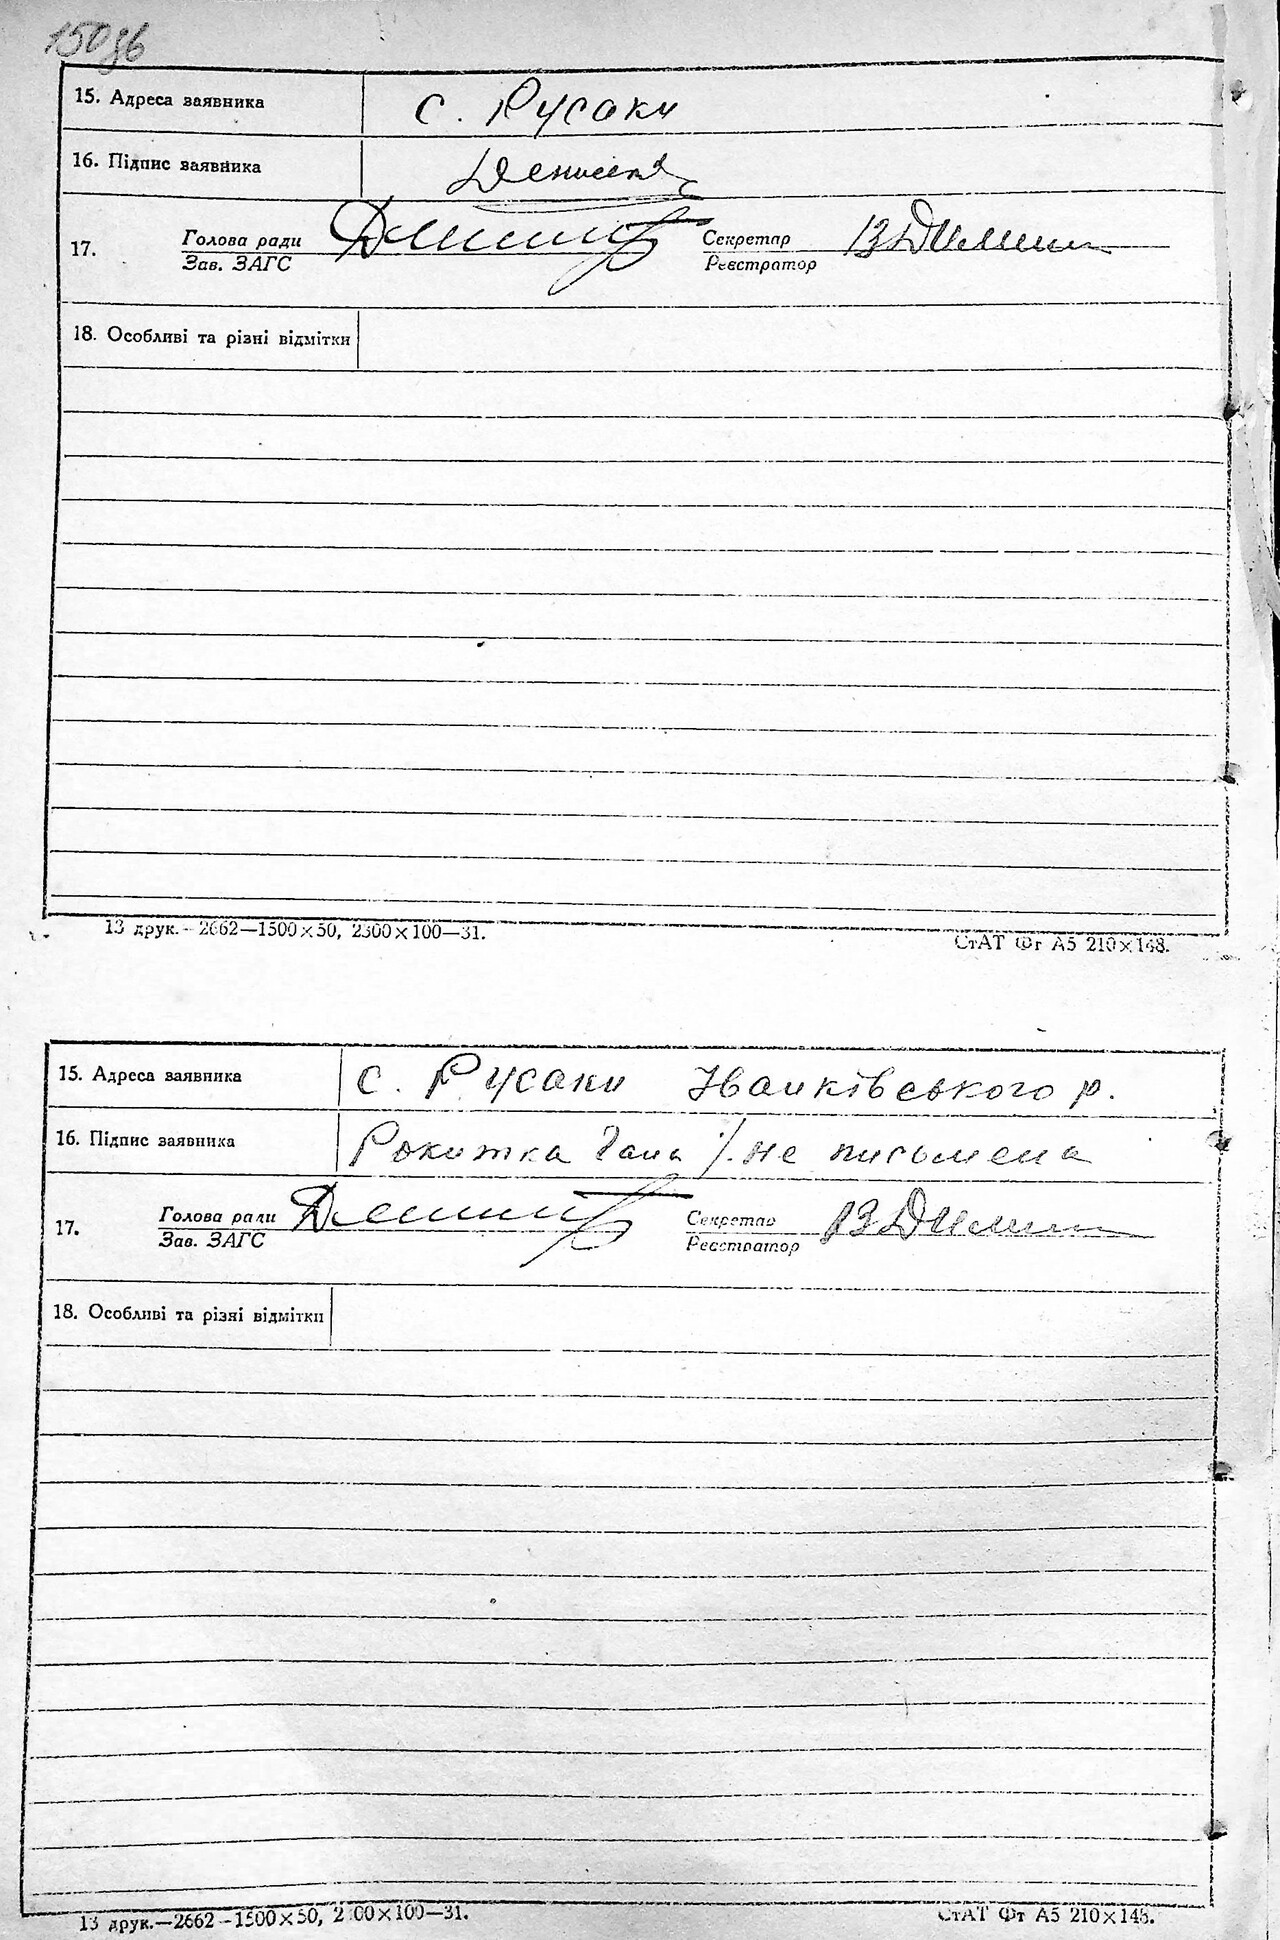 150зб
15. Адреса заявника с. Русаки
16. Підпис заявника
17. Голова ради Секретар
Зав. ЗАГС Реєстратор
18. Особливі та різні відмітки
13 друк.-2662—1500×50, 2300×100—31.
СтАТ Фт А5 210×148.
15. Адреса заявника с. Русаки Іванківського р.
16. Підпис заявника Рокитка Гана /. не письмена
17. Голова ради Секретар
Зав. ЗАГС Реєстратор
18. Особливі та різні відмітки
13 друк.—2662-1500×50, 2300×100—31.
СтАТ Фт А5 210×148.